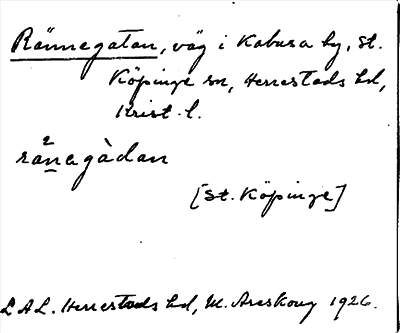 Rännegatan, väg i Kabusa by, St.
Köpinge sn, Herrestads hd,
Krist. l.
ränagàdan
[St. Köpinge]
LAL. Herrestads hd, M. Areskoug 1926.